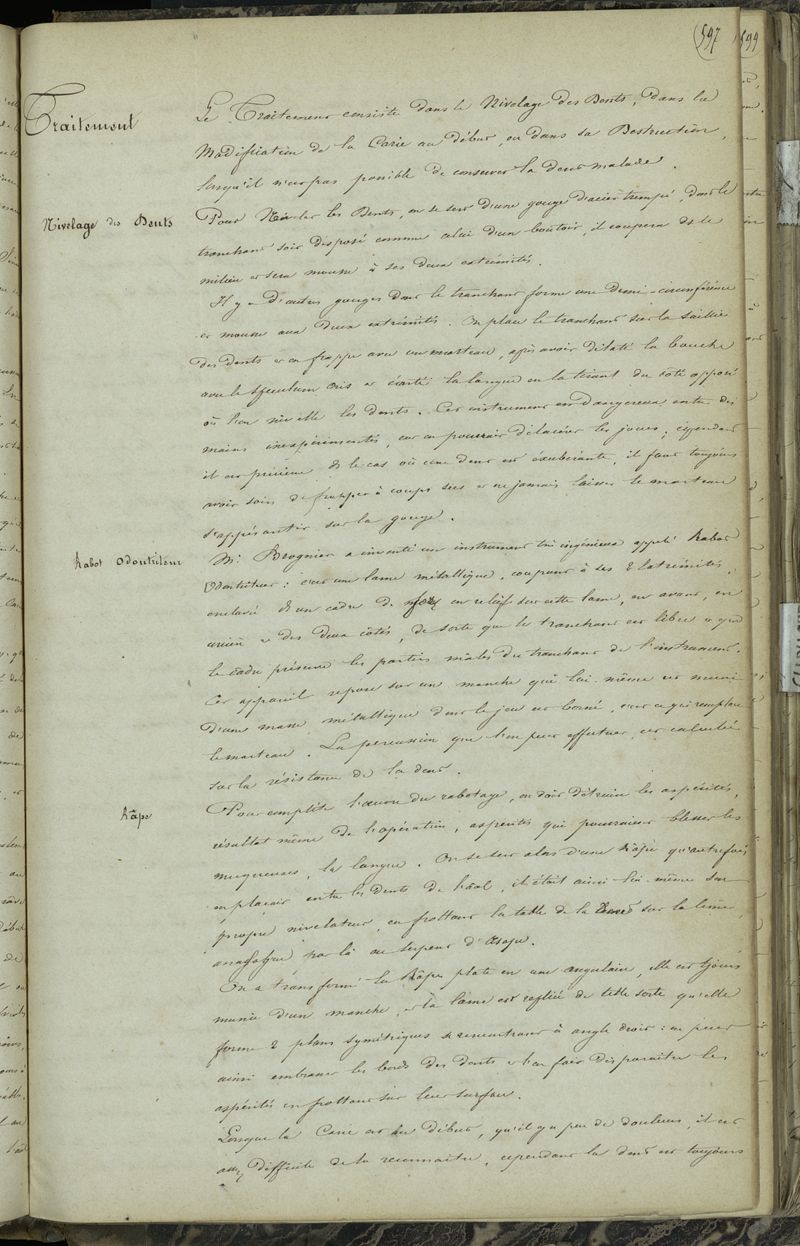 (597
599
Traitement
Le Traitement consiste dans le Nivelage des Dents, dans la
Modification de la Carie au début, ou dans sa Destruction,
lorsqu'il n'est pas possible de conserver la dent malade.
Nivelage des Dents
Pour Niveler les Dents, on se sert d'une gouge d'acier trempé, dont le
tranchant soit disposé comme celui d'un boutoir, il coupera ds le
milieu et sera mousse à ses deux extrémités.
Il y a d'autres gouges dont le tranchant forme une demi-circonférence
et mousse aux deux extrémités. On place le tranchant sur la saillie
des dents et on frappe avec un marteau, après avoir dilaté la bouche
avec le speculum oris et écarté la langue en la tirant du côté opposé
où l'on nivelle les dents. Cet instrument est dangereux entre des
mains inexpérimentés, car on pourrait dilacérer les joues; cependant
il est précieux ds le cas où une dent est éxubérante, il faut toujours
avoir soin de frapper à coups secs et ne jamais laisser le marteau
s'appésantir sur la gouge.
Rabot Odontriteur
Mr Brogniez a inventé un instrument très ingénieux appelé Rabot
Odontriteur: c'est une lame métallique, coupant à ses 2 extrémités,
enclavé ds un cadre de en relief sur cette lame, en avant, en
arrière et des deux côtés, de sorte que le tranchant est libre et que
le cadre préserve les parties molles du tranchant de l'instrument.
Cet appareil repose sur un manche qui lui-même est muni
d'une masse métallique dont le jeu est borné, c'est ce qui remplace
le marteau. La percussion que l'on peut effectuer, est calculée
sur la résistance de la dent.
Râpe
Pour compléter l'œuvre du rabotage, on doit détruire les aspérités,
résultat même de l'opération, aspérités qui pourraient blesser les
muqueuses, la langue. On se sert alors d'une Râpe qu'autrefois
on plaçait entre les dents du chval, il était ainsi lui-même son
propre nivelateur, en frottant la table de la Dent sur la lime,
par là au serpent d'Esope.
On a transformé la Râpe plate en une angulaire, elle est tjours
munie d'un manche, et la lame est repliée de telle sorte qu'elle
forme 2 plans symétriques se rencontrant à angle droit: on peut
ainsi embrasser les bords des dents et l'on fait disparaitre les
aspérités en frottant sur leur surface.
Lorsque la Carie est au Début, qu'il y a peu de douleur, il est
assez difficile de la reconnaitre, cependant la dent est toujours